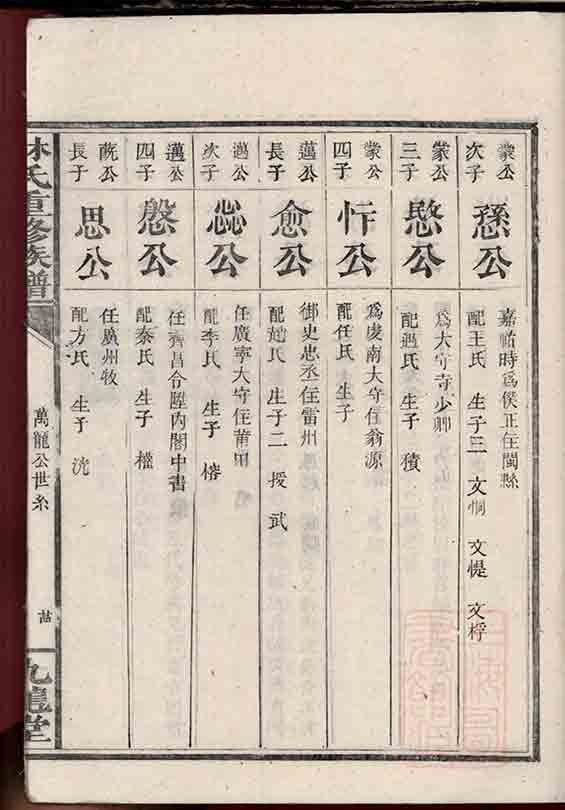 蒙公
次子
愻公
嘉祐時爲侯正住閩縣
配王氏 生子三 文恫 文惿 文桴
蒙公
三子
愍公
爲大守寺少卿
配過氏 生子 積
蒙公
四子
忤公
爲廋南大守住翁源
配任氏 生子
邁公
長子
愈公
御史忠丞住雷州
配趙氏 生子二 援 武
邁公
次子
惢公
任廣寧大守住莆田
配李氏 生子 榕
邁公
四子
慇公
任齊昌令陞内閣中書
配秦氏 生子 權
蔇公
長子
思公
任廣州牧
配方氏 生子 沇
林氏重修族譜
萬龍公世系
九龍堂